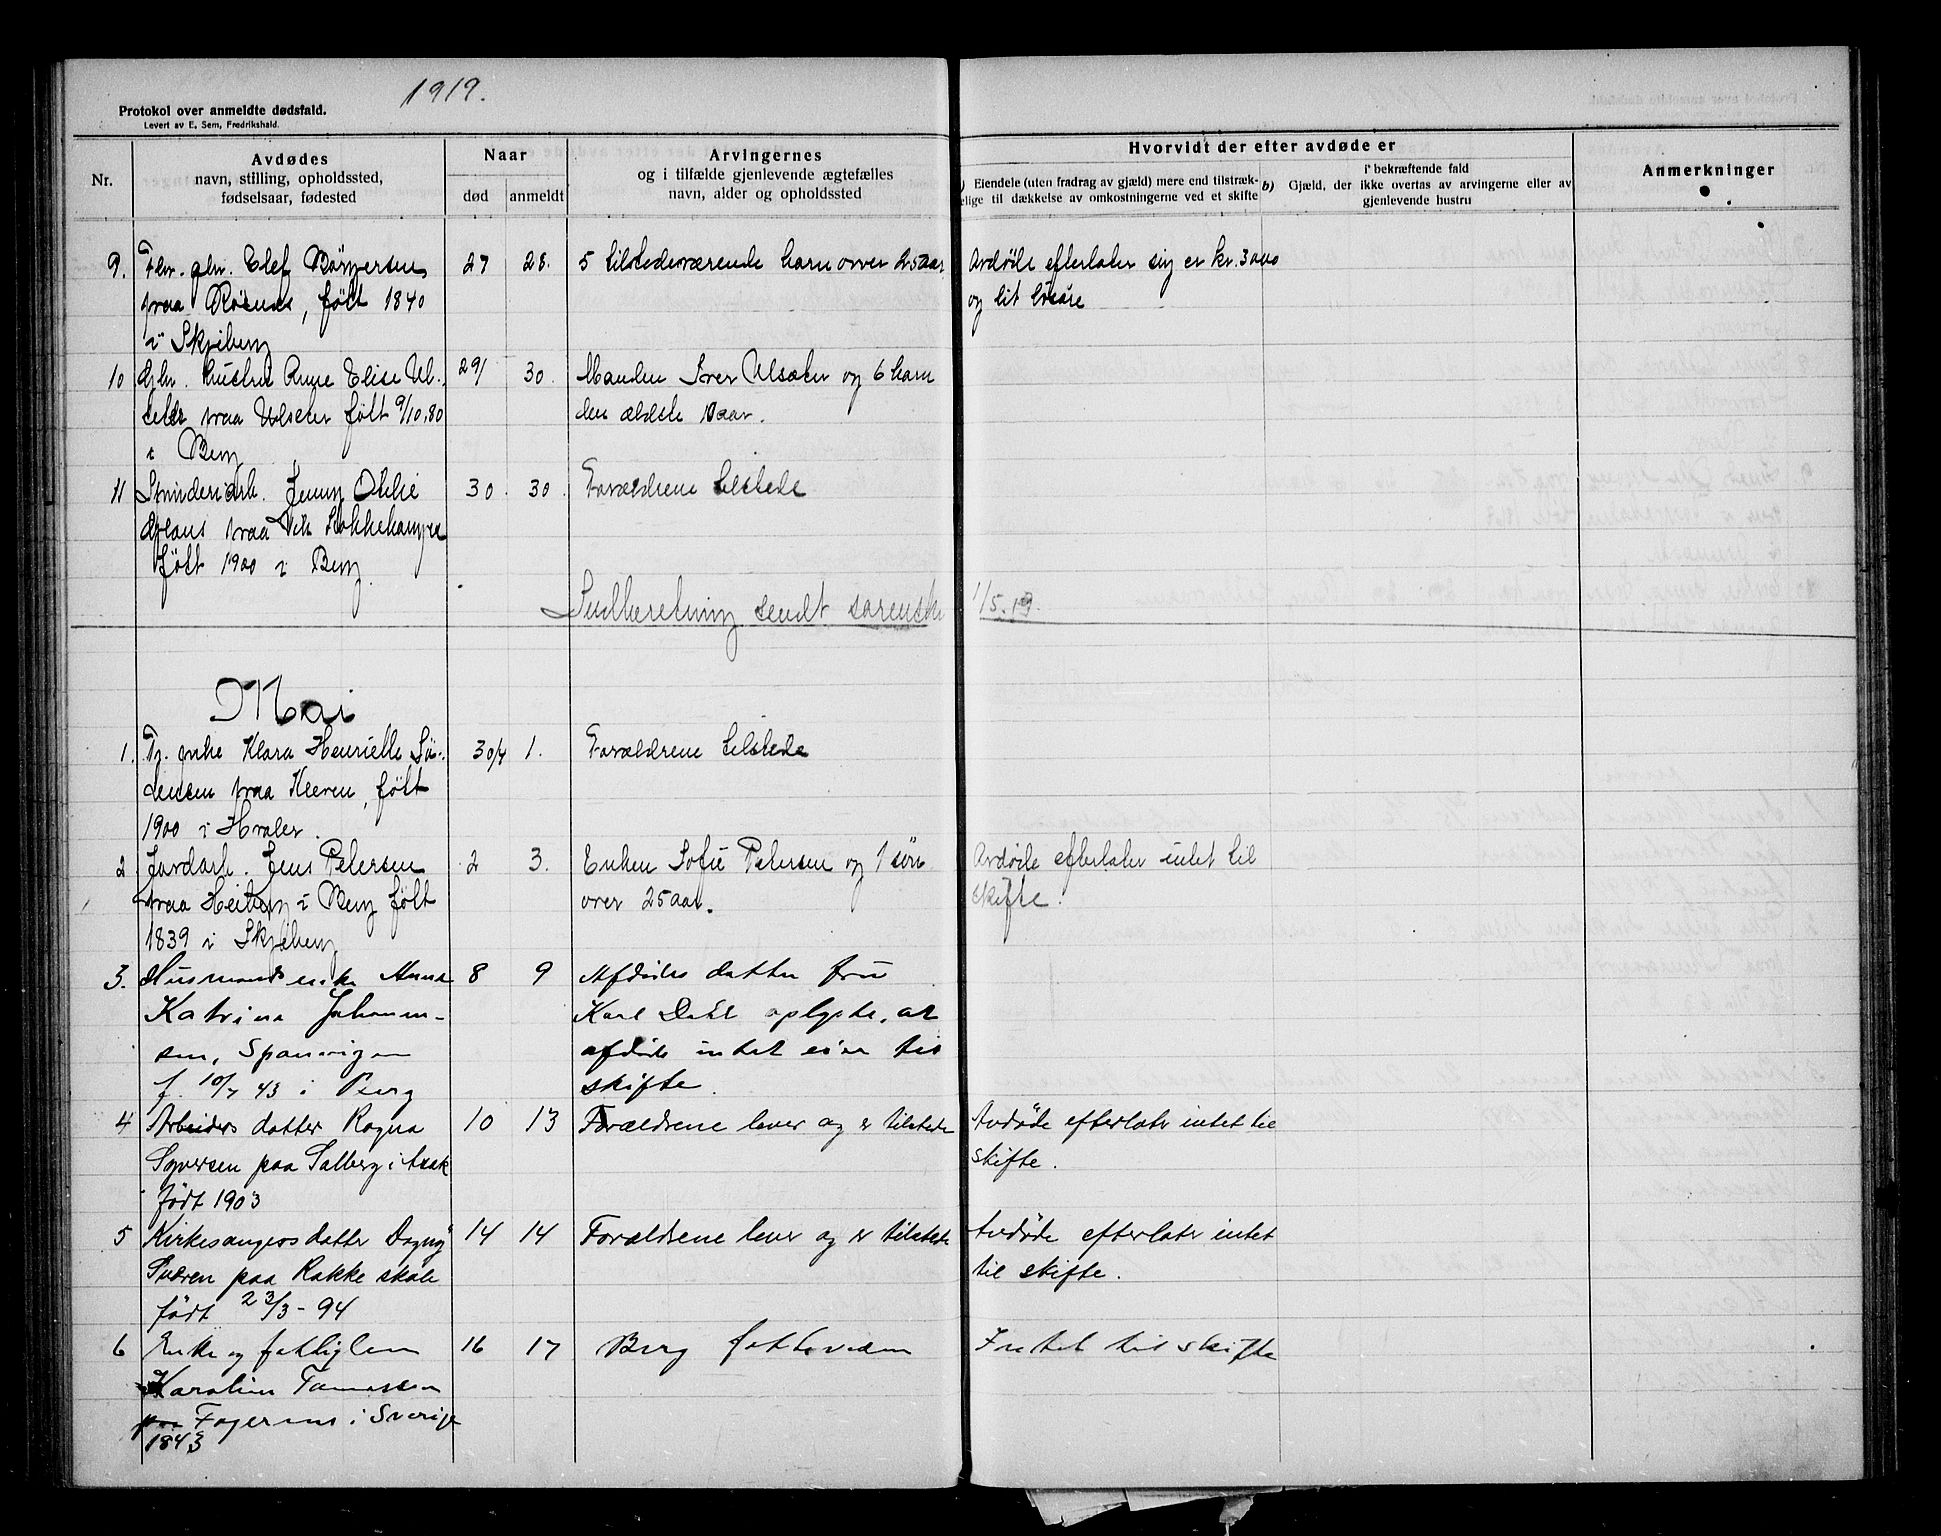 1919.
Protokol over anmeldte dødsfald.
Levert av E. Sem, Fredrikshald.
Nr.
Avdødes
navn, stilling, opholdssted,
fødselsaar, fødested
Naar
død
anmeldt
Arvingernes
og i tilfælde gjenlevende ægtefælles
navn, alder og opholdssted
Hvorvidt der efter avdøde er
Eiendele (uten fradrag av gjæld) mere end tilstræk-
elige til dækkelse av omkostningerne ved et skifte
i bekræftende fald
b) Gjæld, der ikke overtas av arvingerne eller av
gjenlevende hustru
Anmerkninger
9. Elef Børgersen 27 28. 5 tilstedeværende barn over 25 aar Avdøde efterlater sig kr. 3000
paa født 1840 og lit løsøre
i Skjeberg
10 Anne Elise Ul- 29/ 30. Manden Iver Ulsæter og 6 barn
seter paa Ulseter født 9/10.80 den ældste aar.
i Berg
11 Jenny Othlie 30. 30. Forældrene tilstede
paa
født 1900 i Berg.
Indberetning sendt sorensk 1/5.19.
Mai
1. Tj. pike Klara Henriette 30/4 1. Forældrene tilstede
paa født
1900 i Hvaler.
2 Jordarb. Jens Petersen 2 3. Enken Sofie Petersen og 1 søn Avdøde efterlater intet til
paa i Berg født over 25 aar. skifte.
1839 i Skjeberg
3. Husmandsenke Anna 8 9 Afdødes datter fru
Katrina Johann- Karl Dahl oplyste, at
sen, afdøde intet eier til
f. 10/7 43 i Berg skifte.
4 Arbeiders datter Ragna 10 13 Forældrene lever og er tilstede Avdøde efterlater intet til
Syversen paa Solberg i Asak skifte.
født 1903
5 Kirkesangers datter Dagny 14 14 Forældrene lever og er tilstede Avdøde efterlater intet
paa Rokke skole til skifte.
født 23/3-94
6 Enke og fattiglem 16 17 Berg fattevæsen Intet til skifte
Karoline
i Sverige
1843